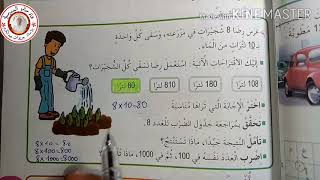 KINEMASTER
غرس رضا 8 شجيرات في مزرعته، وسقى كل واحدة
بـ 10 لترات من الماء.
إليك الاقتراحات الآتية: استعمل رضا لسقي كل الشجيرات؟
108 لترا
180 لترا
810 لترا
80 لترا
اختر الإجابة التي تراها مناسبة. 8×10=80
تحقق بمراجعة جدول الضرب للعدد 8.
تأمل النتيجة جيدا، ماذا تستنتج؟
اضرب العدد نفسه في 100، ثم في 1000، ماذا
8×10=80
8×100=800
8×1000=8000